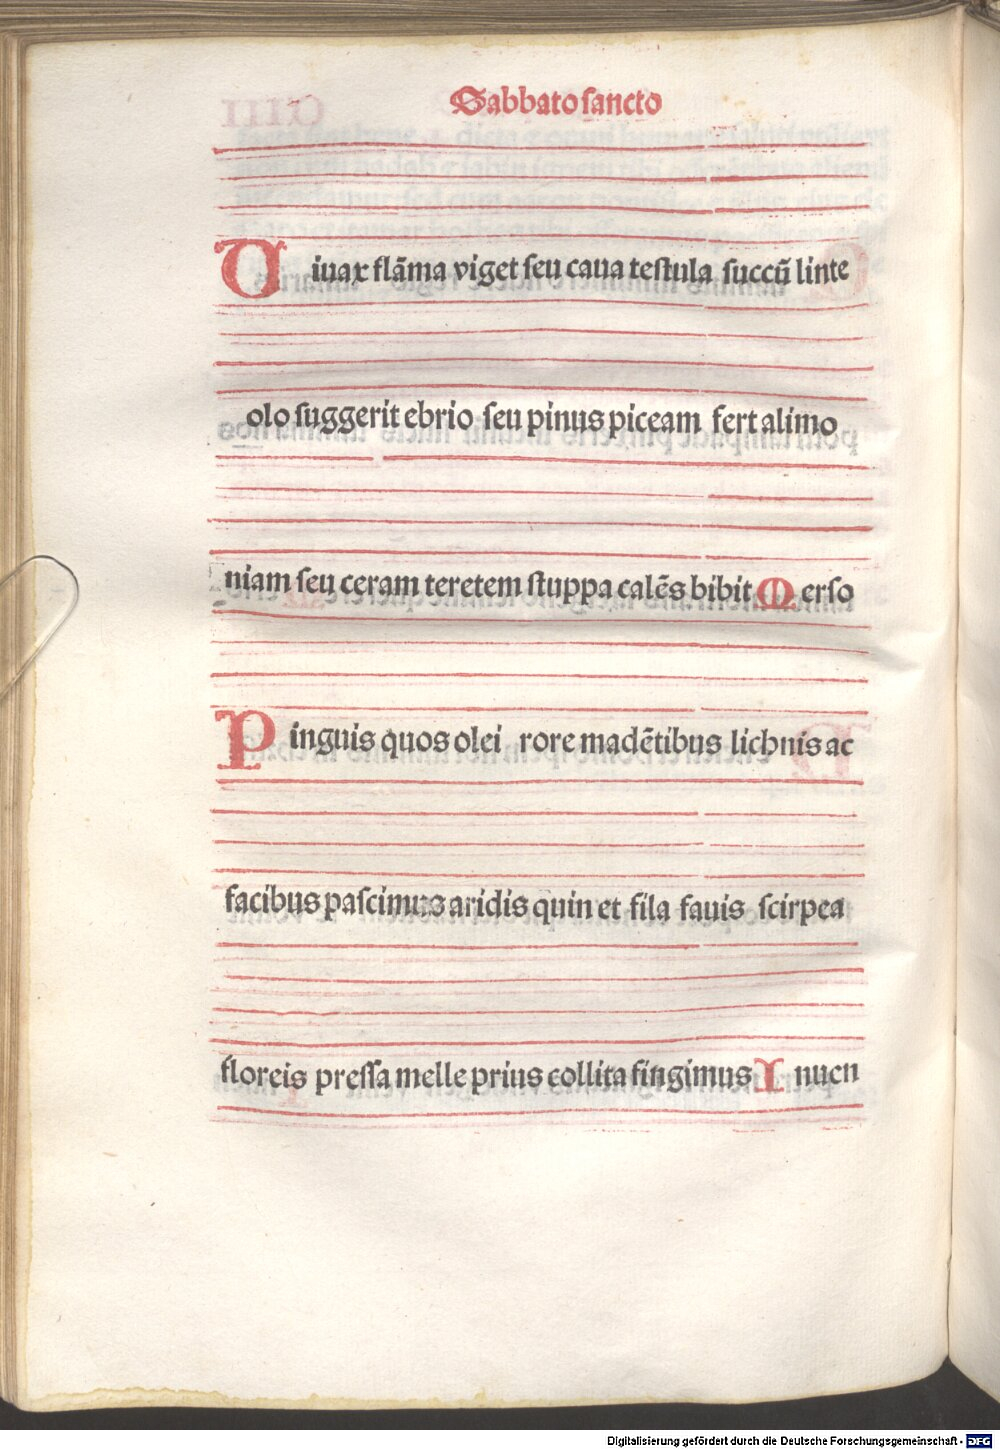 Sabbato sancto
Uiuax flāma viget seu caua testula succū linte
olo suggerit ebrio seu pinus piceam fert alimo
niam seu ceram teretem stuppa calēs bibit Merso
Pinguis quos olei rore madētibus lichnis ac
facibus pascimus aridis quin et fila fauis scirpea
floreis pressa melle prius collita fingimus Inuen
Digitalisierung gefördert durch die Deutsche Forschungsgemeinschaft - DFG